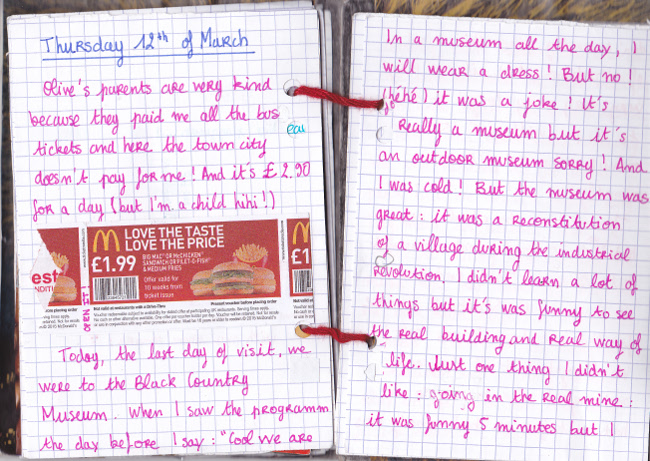 Thursday 12th of March
Olive's parents are very kind
because they paid me all the bus
tickets and here the town city
doesn't pay for me! And it's £ 2.90
for a day (but I'm a child hihi!)
LOVE THE TASTE
LOVE THE PRICE
£1.99
BIG MAC® OR McCHICKEN®
SANDWICH OR FILET-O-FISH™
& MEDIUM FRIES
Offer valid for
10 weeks from
ticket issue
Present voucher before placing order
Not valid at restaurants with a Drive-Thru
est
£1
Today, the last day of visit, we
were to the Black Country
Museum. When I saw the programm
the day before I say: "Cool we are
In a museum all the day, I
will wear a dress! But no!
(héhé) it was a joke! It's
Really a museum but it's
an outdoor museum sorry! And
I was cold! But the museum was
great: it was a reconstitution
of a village during the industrial
revolution. I didn't learn a lot of
things but it's was funny to see
the real building and real way of
life.. Just one thing I didn't
like: going in the real mine:
it was funny 5 minutes but I